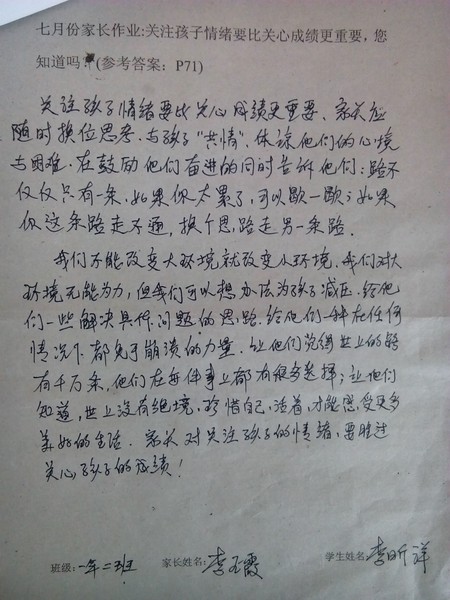 七月份家长作业:关注孩子情绪要比关心成绩更重要，您
知道吗?(参考答案：P71)
关注孩子情绪要比关心成绩更重要、家长应
随时换位思考.与孩子“共情”.体谅他们的心境
与困难.在鼓励他们奋进的同时告诉他们:路不
仅仅只有一条,如果你太累了,可以歇一歇;如果
你这条路走不通,换个思路走另一条路.
我们不能改变大环境就改变小环境.我们对大
环境无能为力,但我们可以想办法为孩子减压.给他
们一些解决具体问题的思路.给他们一种在任何
情况下都免于崩溃的力量.让他们觉得世上的路
有千万条,他们在每件事上都有很多选择;让他们
知道,世上没有绝境.珍惜自己.活着.才能感受更多
美好的生活.家长对关注孩子的情绪,要胜过
关心孩子的成绩!
班级:一年二班 家长姓名:李玉霞 学生姓名:李昕洋